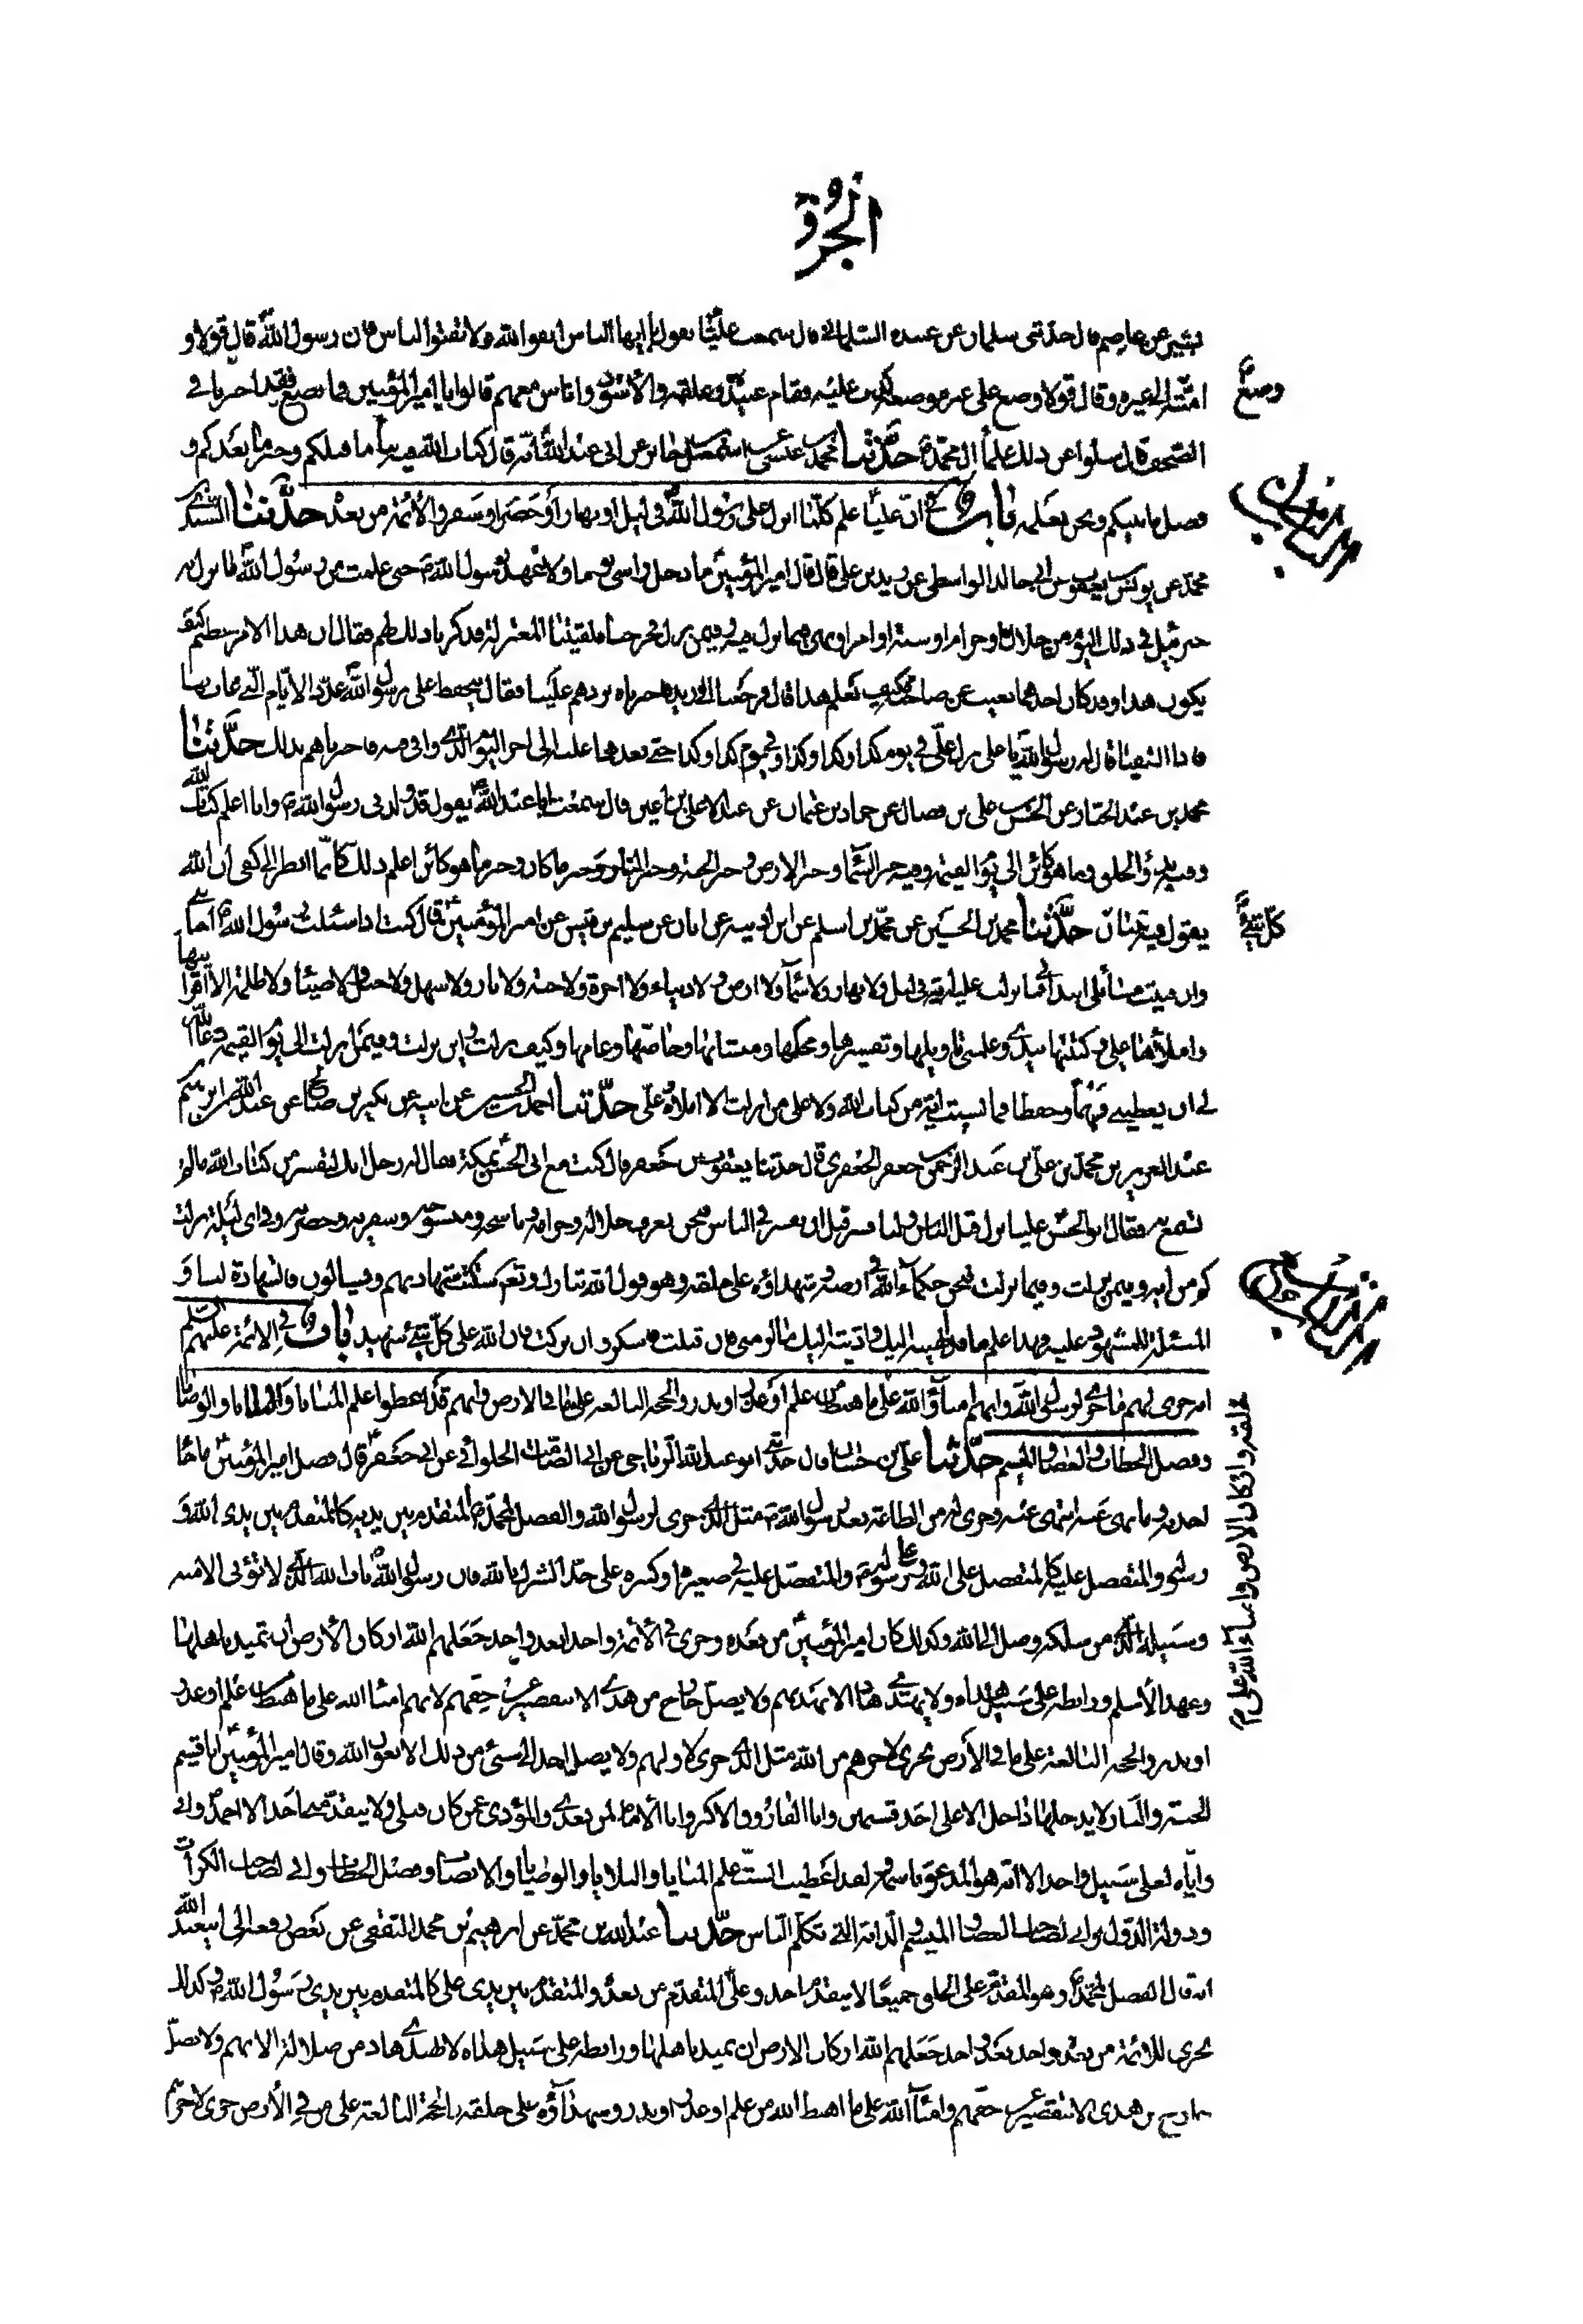 الجزؤ
بشير عن عاصم قال حدثنى سلمان عن عبيده السلمانى قال سمعت عليا يقول يا ايها الناس اتقوا الله ولا تفتوا الناس فان رسول الله قال قولا و
امته الى غيره وقال قولا وضع على غير موضعه كذب عليه فقام عبيدة وعلقمه والأسود واناس معهم قالوا يا امير المؤمنين فما نصنع فقد اخبرنا فى
وضع
الصحف قال سلوا عن ذلك علماء ال محمد حدثنا محمد بن عيسى عن اسمعيل بن جابر عن ابى عبد الله انه قال كتاب الله فيه نبأ ما قبلكم وخبر ما بعدكم و
فصل ما بينكم ونحن نعلمه باب فى ان عليا علم كلما انزل على رسول الله فى ليل او نهار أو حضر او سفر والأئمة من بعده حدثنا السندى
الباب الثامن
محمد عن يونس بن يعقوب عن ابى خالد الواسطى عن زيد بن على قال قال امير المؤمنين ما دخل راسى نوما ولا عهد رسول الله حتى علمت من رسول الله ما نزل به
جبرئيل فى ذلك اليوم من حلال او حرام او سنة او امر او نهى فيما نزل فيه وفيمن نزل فخرجنا فلقيتنا المعتزلة فذكرنا ذلك لهم فقال ان هذا الامر عظيم كيف
يكون هذا وقد كان احدهما يغيب عن صاحبه فكيف يعلم هذا قال فرجعنا الى زيد فاخبرناه بردهم علينا فقال يتحفظ على رسول الله عدد الايام التى غاب بها
فاذا التقيا قال له رسول الله يا على نزل على فى يوم كذا وكذا وكذا وفى يوم كذا وكذا حتى يعدهما عليه الى اخر اليوم الذى وافى فيه فاخبرناهم بذلك حدثنا
محمد بن عبد الجبار عن الحسن بن على بن فضال عن حماد بن عثمان عن عبد الاعلى بن اعين قال سمعت ابا عبد الله يقول قد ولدنى رسول الله وانا اعلم كتاب الله
وفيه بدؤ الخلق وما هو كائن الى يوم القيمة وفيه خبر السماء وخبر الارض وخبر الجنة وخبر النار وخبر ما كان وخبر ما هو كائن اعلم ذلك كانما انظر الى كفى ان الله
يقول فيه تبيان حدثنا محمد بن الحسين عن محمد بن اسلم عن ابن اذينه عن ابان عن سليم بن قيس عن امير المؤمنين قال كنت اذا سئلت رسول الله اجابنى
كل شئ
وان فنيت مسائلى ابتدأنى فما نزلت عليه اية فى ليل ولا نهار ولا سماء ولا ارض ولا دنياء ولا اخرة ولا جنة ولا نار ولا سهل ولا جبل ولا ضياء ولا ظلمة الا اقرأنيها
واملأها على وكتبتها بيدى وعلمنى تاويلها وتفسيرها ومحكمها ومتشابهها وخاصها وعامها وكيف نزلت واين نزلت وفيمن نزلت الى يوم القيمة دعا الله
لى ان يعطينى فهما وحفظا فما نسيت اية من كتاب الله ولا على من انزلت الا املاه على حدثنا احمد بن الحسين عن ابيه عن بكير بن صالح عن عبد الله بن ابرهيم
عبد العزيز بن محمد بن على بن عبد الرحمن بن جعفر الجعفرى قال حدثنا يعقوب بن جعفر قال كنت مع ابى الحسن بمكة فقال له رجل انك لتفسر من كتاب الله ما لم
تسمع به فقال ابو الحسن علينا نزل قبل الناس ولنا فسر قبل ان يفسر فى الناس فنحن نعرف حلاله وحرامه وناسخه ومنسوخه وسفريه وحضريه وفى اى ليلة نزلت
كم من اية وفيمن نزلت وفيما نزلت فنحن حكماء الله فى ارضه وشهداؤه على خلقه وهو قول الله تبارك وتعالى ستكتب شهادتهم ويسالون فالشهادة لنا و
المسئلة للمشهود عليه فهذا علم ما قد انهيته اليك واديته اليك ما لزمنى فان قبلت فاشكر وان تركت فان الله على كل شئ شهيد باب فى الائمة عليهم السلم
الباب التاسع
انه جرى لهم ما جرى لرسول الله وانهم امناء الله على ما هبط من علم أو عذر او نذر والحجة البالغة على ما فى الارض وانهم قد اعطوا علم المنايا والبلايا والوصايا
وفصل الخطاب والعصا والميسم حدثنا على بن حسان قال حدثنى ابو عبد الله الرياحى عن ابى الصامت الحلوانى عن ابى جعفر قال فضل امير المؤمنين ما جاء
اخذ به وما نهى عنه انتهى عنه وجرى له من الطاعة بعد رسول الله مثل الذى جرى لرسول الله والفضل لمحمد المتقدم بين يديه كالمتقدم بين يدى الله و
رسوله والمتفضل عليه كالمتفضل على الله وعلى رسوله والمتفضل عليه فى صغيره او كبيره على حد الشرك بالله فان رسول الله باب الله الذى لا يؤتى الا منه
وسبيله الذى من سلكه وصل الى الله وكذلك كان امير المؤمنين من بعده وجرى فى الأئمة واحدا بعد واحد جعلهم الله اركان الأرض ان تميد باهلها
وعهد الأسلم ورابطه على سبيل هداه ولا يهتدى هاد الا بهديهم ولا يضل خارج من هدى الا بتقصير عن حقهم لانهم امناء الله على ما هبط من علم او عذر
او نذر والحجة البالغة على ما فى الأرض يجرى لاخرهم من الله مثل الذى جرى لاولهم ولا يصل احد الى شئ من ذلك الا بعون الله وقال امير المؤمنين انا قسيم
الجنة والنار لا يدخلها داخل الا على احد قسمين وانا الفاروق الاكبر وانا الأمام لمن بعدى والمؤدى عن كان قبلى ولا يتقدمنى احد الا احمد وانى
واياه لعلى سبيل واحد الا انه هو المدعو باسمه ولقد اعطيت الست علم المنايا والبلايا والوصايا والانصاب وفصل الخطاب وانى لصاحب الكرات
ودولة الدول وانى لصاحب العصا والميسم والدابة التى تكلم الناس حدثنا عبد الله بن محمد عن ابرهيم بن محمد الثقفى عن بعض رفعه الى ابى عبد الله
انه قال الفضل لمحمد وهو المقدم على الخلق جميعا لا يتقدمه احد وعلى المتقدم من بعده والمتقدم بين يدى على كالمتقدم بين يدى رسول الله وكذلك
يجرى للائمة من بعده واحد بعد واحد جعلهم الله اركان الارض ان تميد باهلها ورابطه على سبيل هداه لا يهتدى هاد من ضلالة الا بهم ولا يضل
خارج من هدى الا بتقصير عن حقهم وامناء الله على ما اهبط الله من علم او عذر او نذر وشهداؤه على خلقه بالحجة البالغة على من فى الأرض جرى لاخرهم